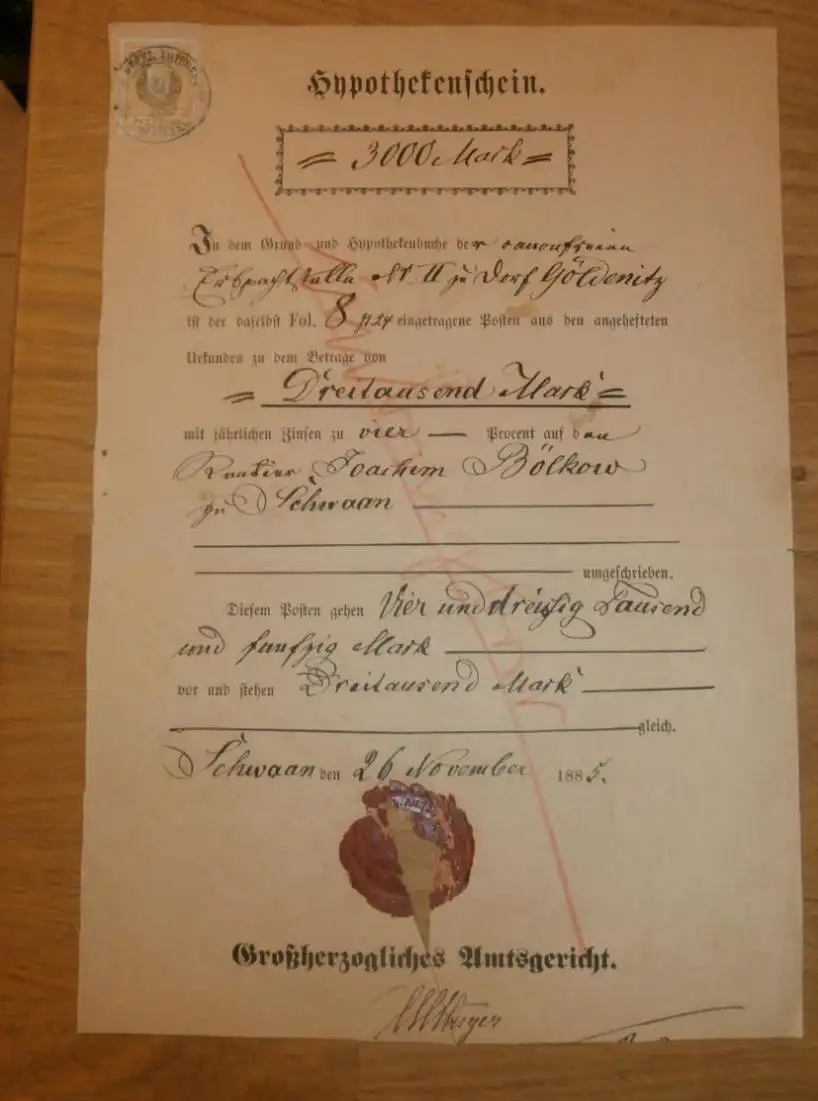 Hypothekenschein.
= 3000 Mark =
In dem Grund- und Hypothekenbuche der canonfreien
Erbpachtstelle No II zu Dorf Göldenitz
ist der daselbst Fol. 8 eingetragene Posten aus den angehefteten
Urkunden zu dem Betrage von
= Dreitausend Mark =
mit jährlichen Zinsen zu vier — Procent auf den
Rentier Joachim Bölkow
zu Schwaan
umgeschrieben.
Diesem Posten gehen Vier und dreißig Tausend
und funfzig Mark
vor und stehen Dreitausend Mark
gleich.
Schwaan den 26 November 1885.
Großherzogliches Amtsgericht.